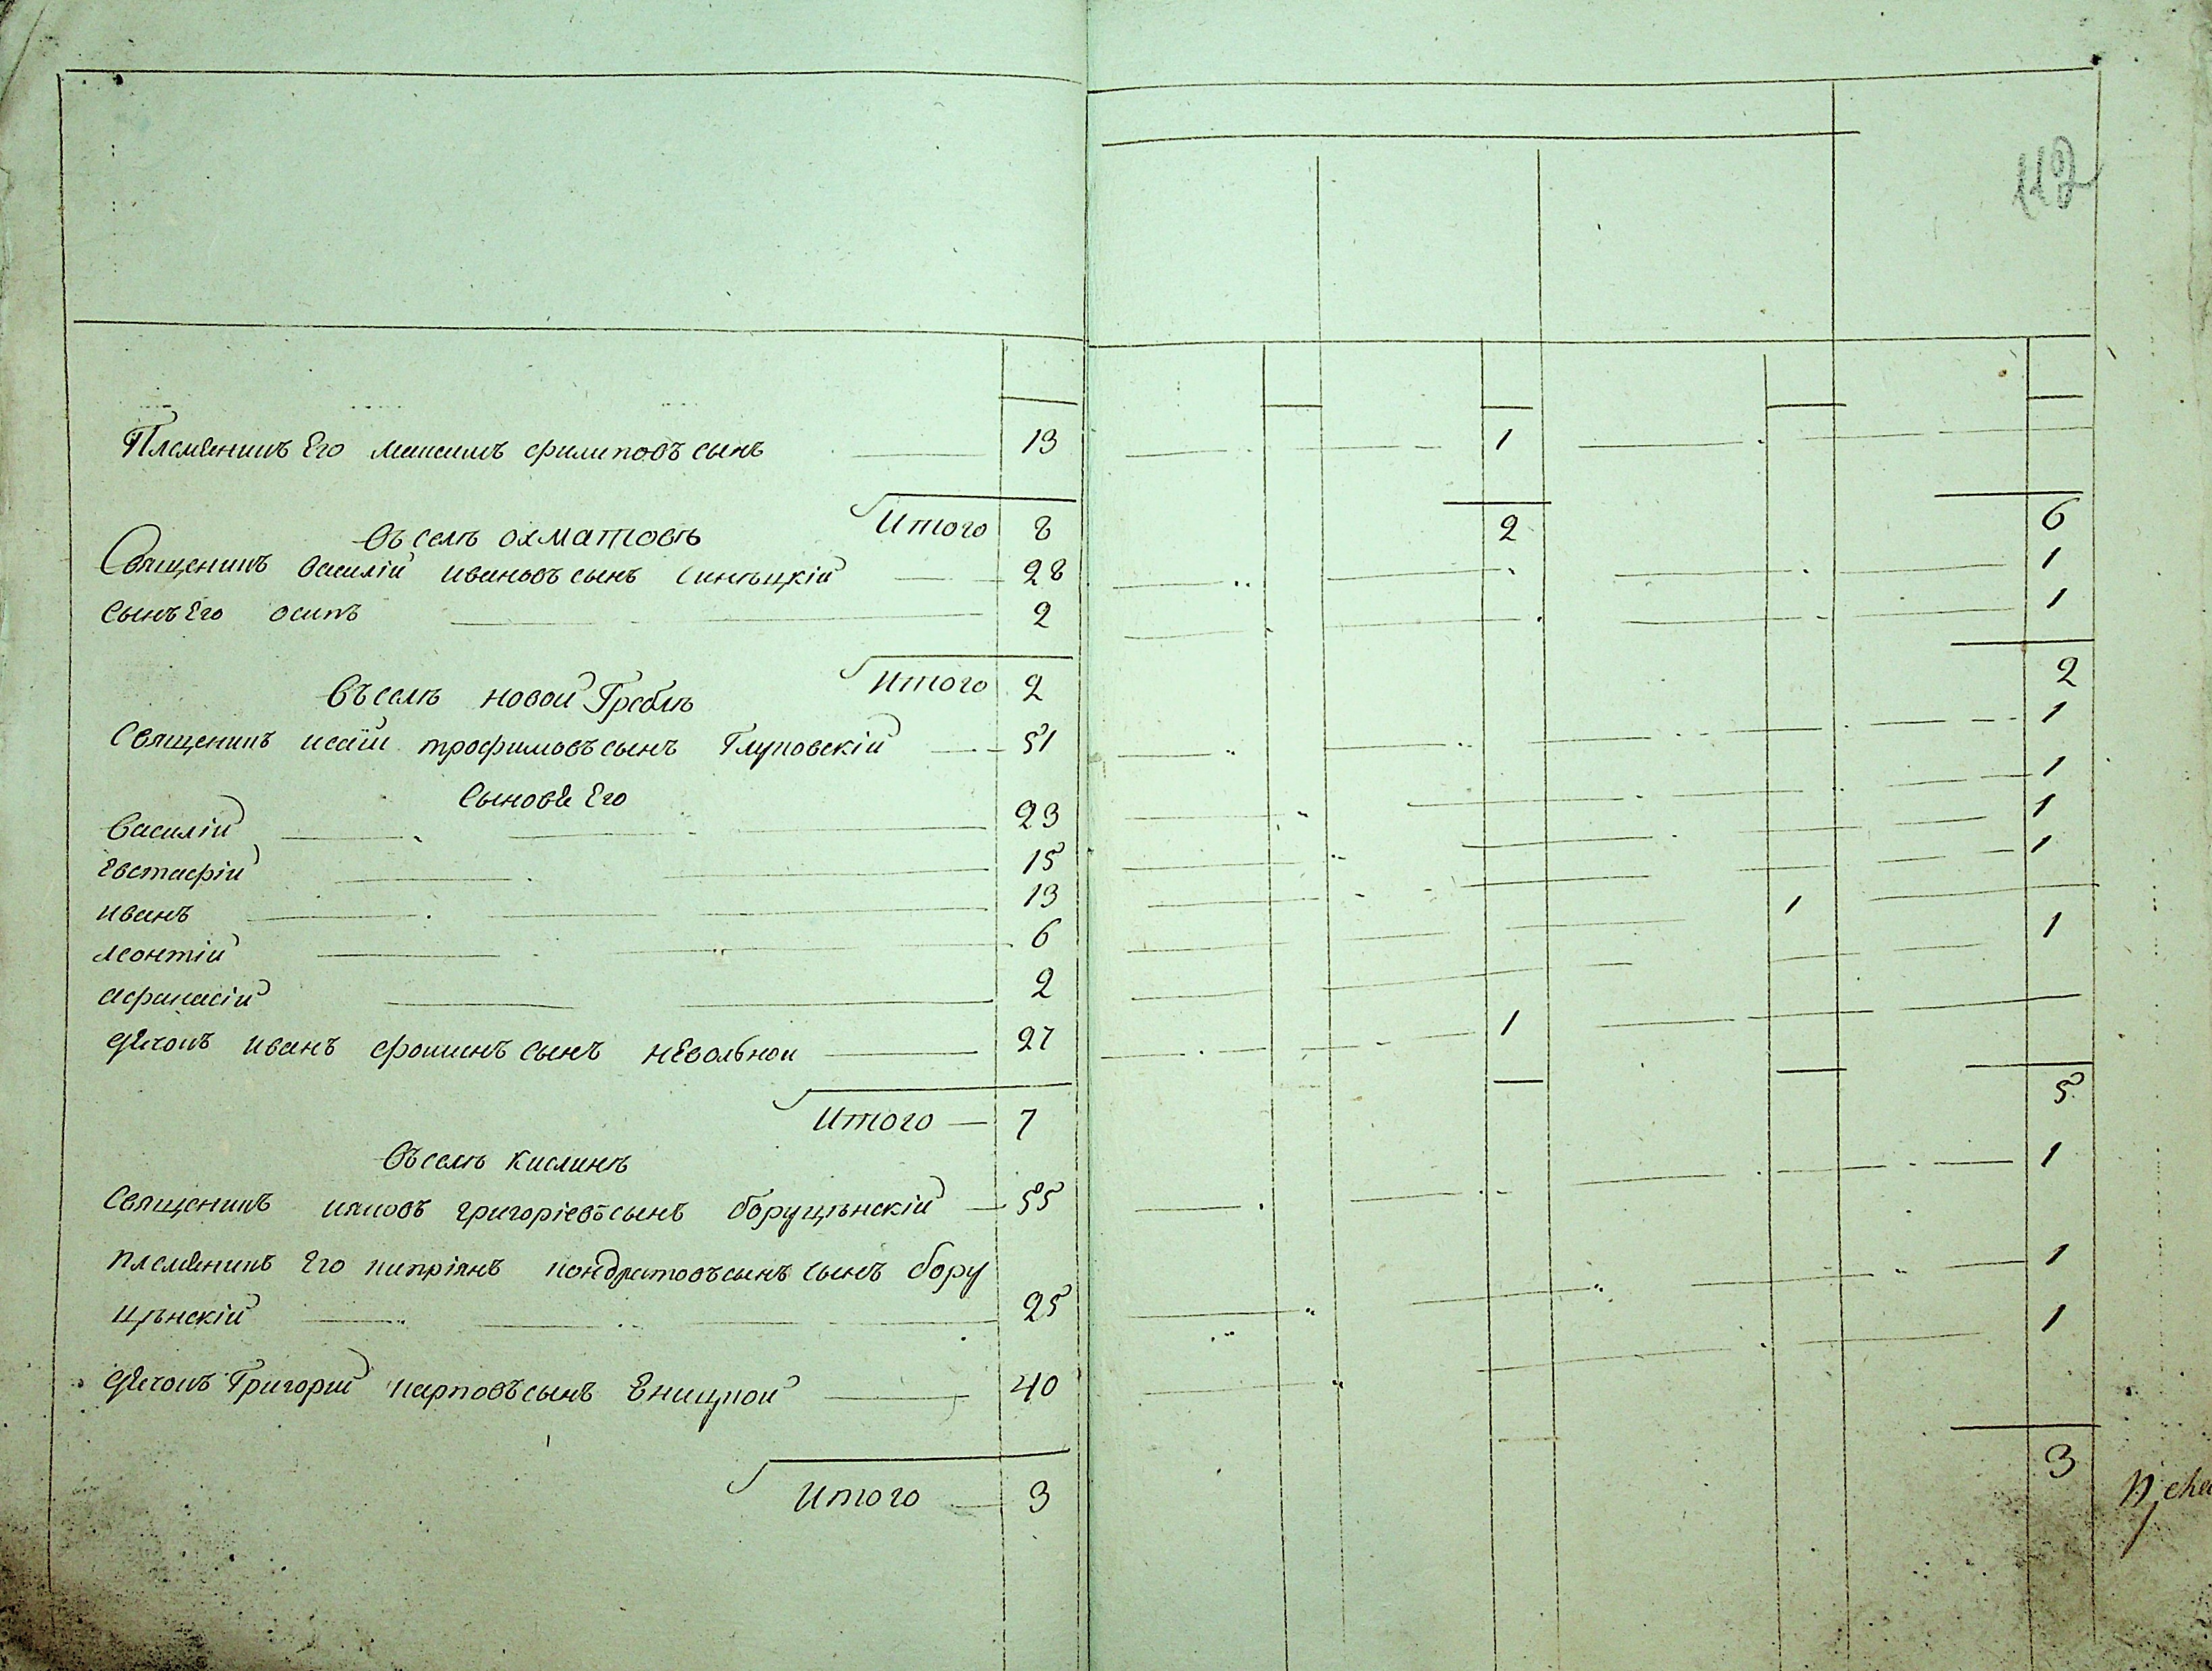 112
Племяникъ Его максимъ филиповъ сынъ 13 1
Итого 8 2 6
Въ селѣ охматовѣ
Священикъ василій ивановъ сынъ синѣцкій 28 1
Сынъ Его осипъ 2 1
Итого 2 2
Въ селѣ новой Греблѣ
Священикъ исаій трофимовъ сынъ Глуповскій 51 1
Сыновя Его
Василій 23 1
Евстафій 15 1
иванъ 13 1
леонтій 6 1
афанасій 2 1
дячокъ иванъ фоминъ сынъ невольной 27 1
Итого 7 5
Въ селѣ кислинѣ
Священикъ иаковъ григоріевъ сынъ боруцѣнскій 55 1
племяникъ Его кипріянъ кондратовъ сынъ сынъ бору
цѣнскій 25 1
дячокъ Григорій карповъ сынъ Еницкой 40 1
Итого 3 3